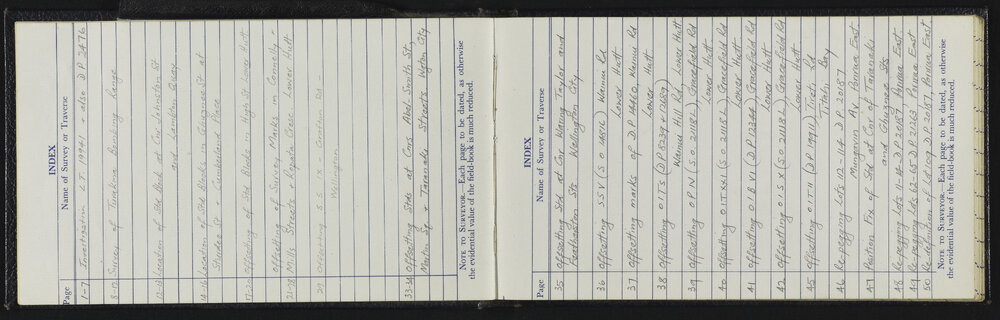 INDEX
Page Name of Survey or Traverse
1-7 Investigation L.T. 19941 + also D.P. 2476
8-12 Survey of Tunakina Bombing Range
12-13 Location of Std Block at Cnr Johnston St
and Lambton Quay
14-16 Location of Std Blks in Ghuznee St at
Cumberland Place
17-20 Offsetting of Std Blocks in High St Lower Hutt
Offsetting of Survey Marks in Connolly +
21-28 Mills Streets + Rapata Cresc. Lower Hutt
29 Offsetting S.S. IX
Wellington
33-34 Offsetting Stds at Cors Abel Smith St,
Martin Sq + Taranaki Streets Wgtn City
NOTE TO SURVEYOR.—Each page to be dated, as otherwise
the evidential value of the field-book is much reduced.
INDEX
Page Name of Survey or Traverse
35 Offsetting Std at Cnr Waring Taylor and
Featherston Sts Wellington City
36 Offsetting SSV (S.O. ) Wainui Rd
Lower Hutt
37 Offsetting marks of D.P. Wainui Rd
Lower Hutt
38 Offsetting OITS (D.P. 8239 + 21657)
Wainui Hill Rd, Lower Hutt
39 Offsetting OPN (S.O. 21118) Gracefield Rd
Lower Hutt
40 Offsetting (S.O. 21115) Gracefield Rd
Lower Hutt
41 Offsetting OIBVI (D.P. 12266) Gracefield Rd
Lower Hutt
42 Offsetting OISX (S.O. 21118) Gracefield Rd
Lower Hutt
45 Offsetting (D.P. 19991) Titahi Rd
Titahi Bay
46 Re-pegging Lots 112-114 D.P. 20167
Mungavin Av Porirua East
47 Position Fix of Std at Cnr of Taranaki
and Ghuznee Sts
48 Re-pegging Lots D.P. Porirua East
49 Re-pegging Lots 62-65 D.P. 21663 Porirua East
50 Re-definition of Lot 109 D.P. 20167, Porirua East.
NOTE TO SURVEYOR.—Each page to be dated, as otherwise
the evidential value of the field-book is much reduced.